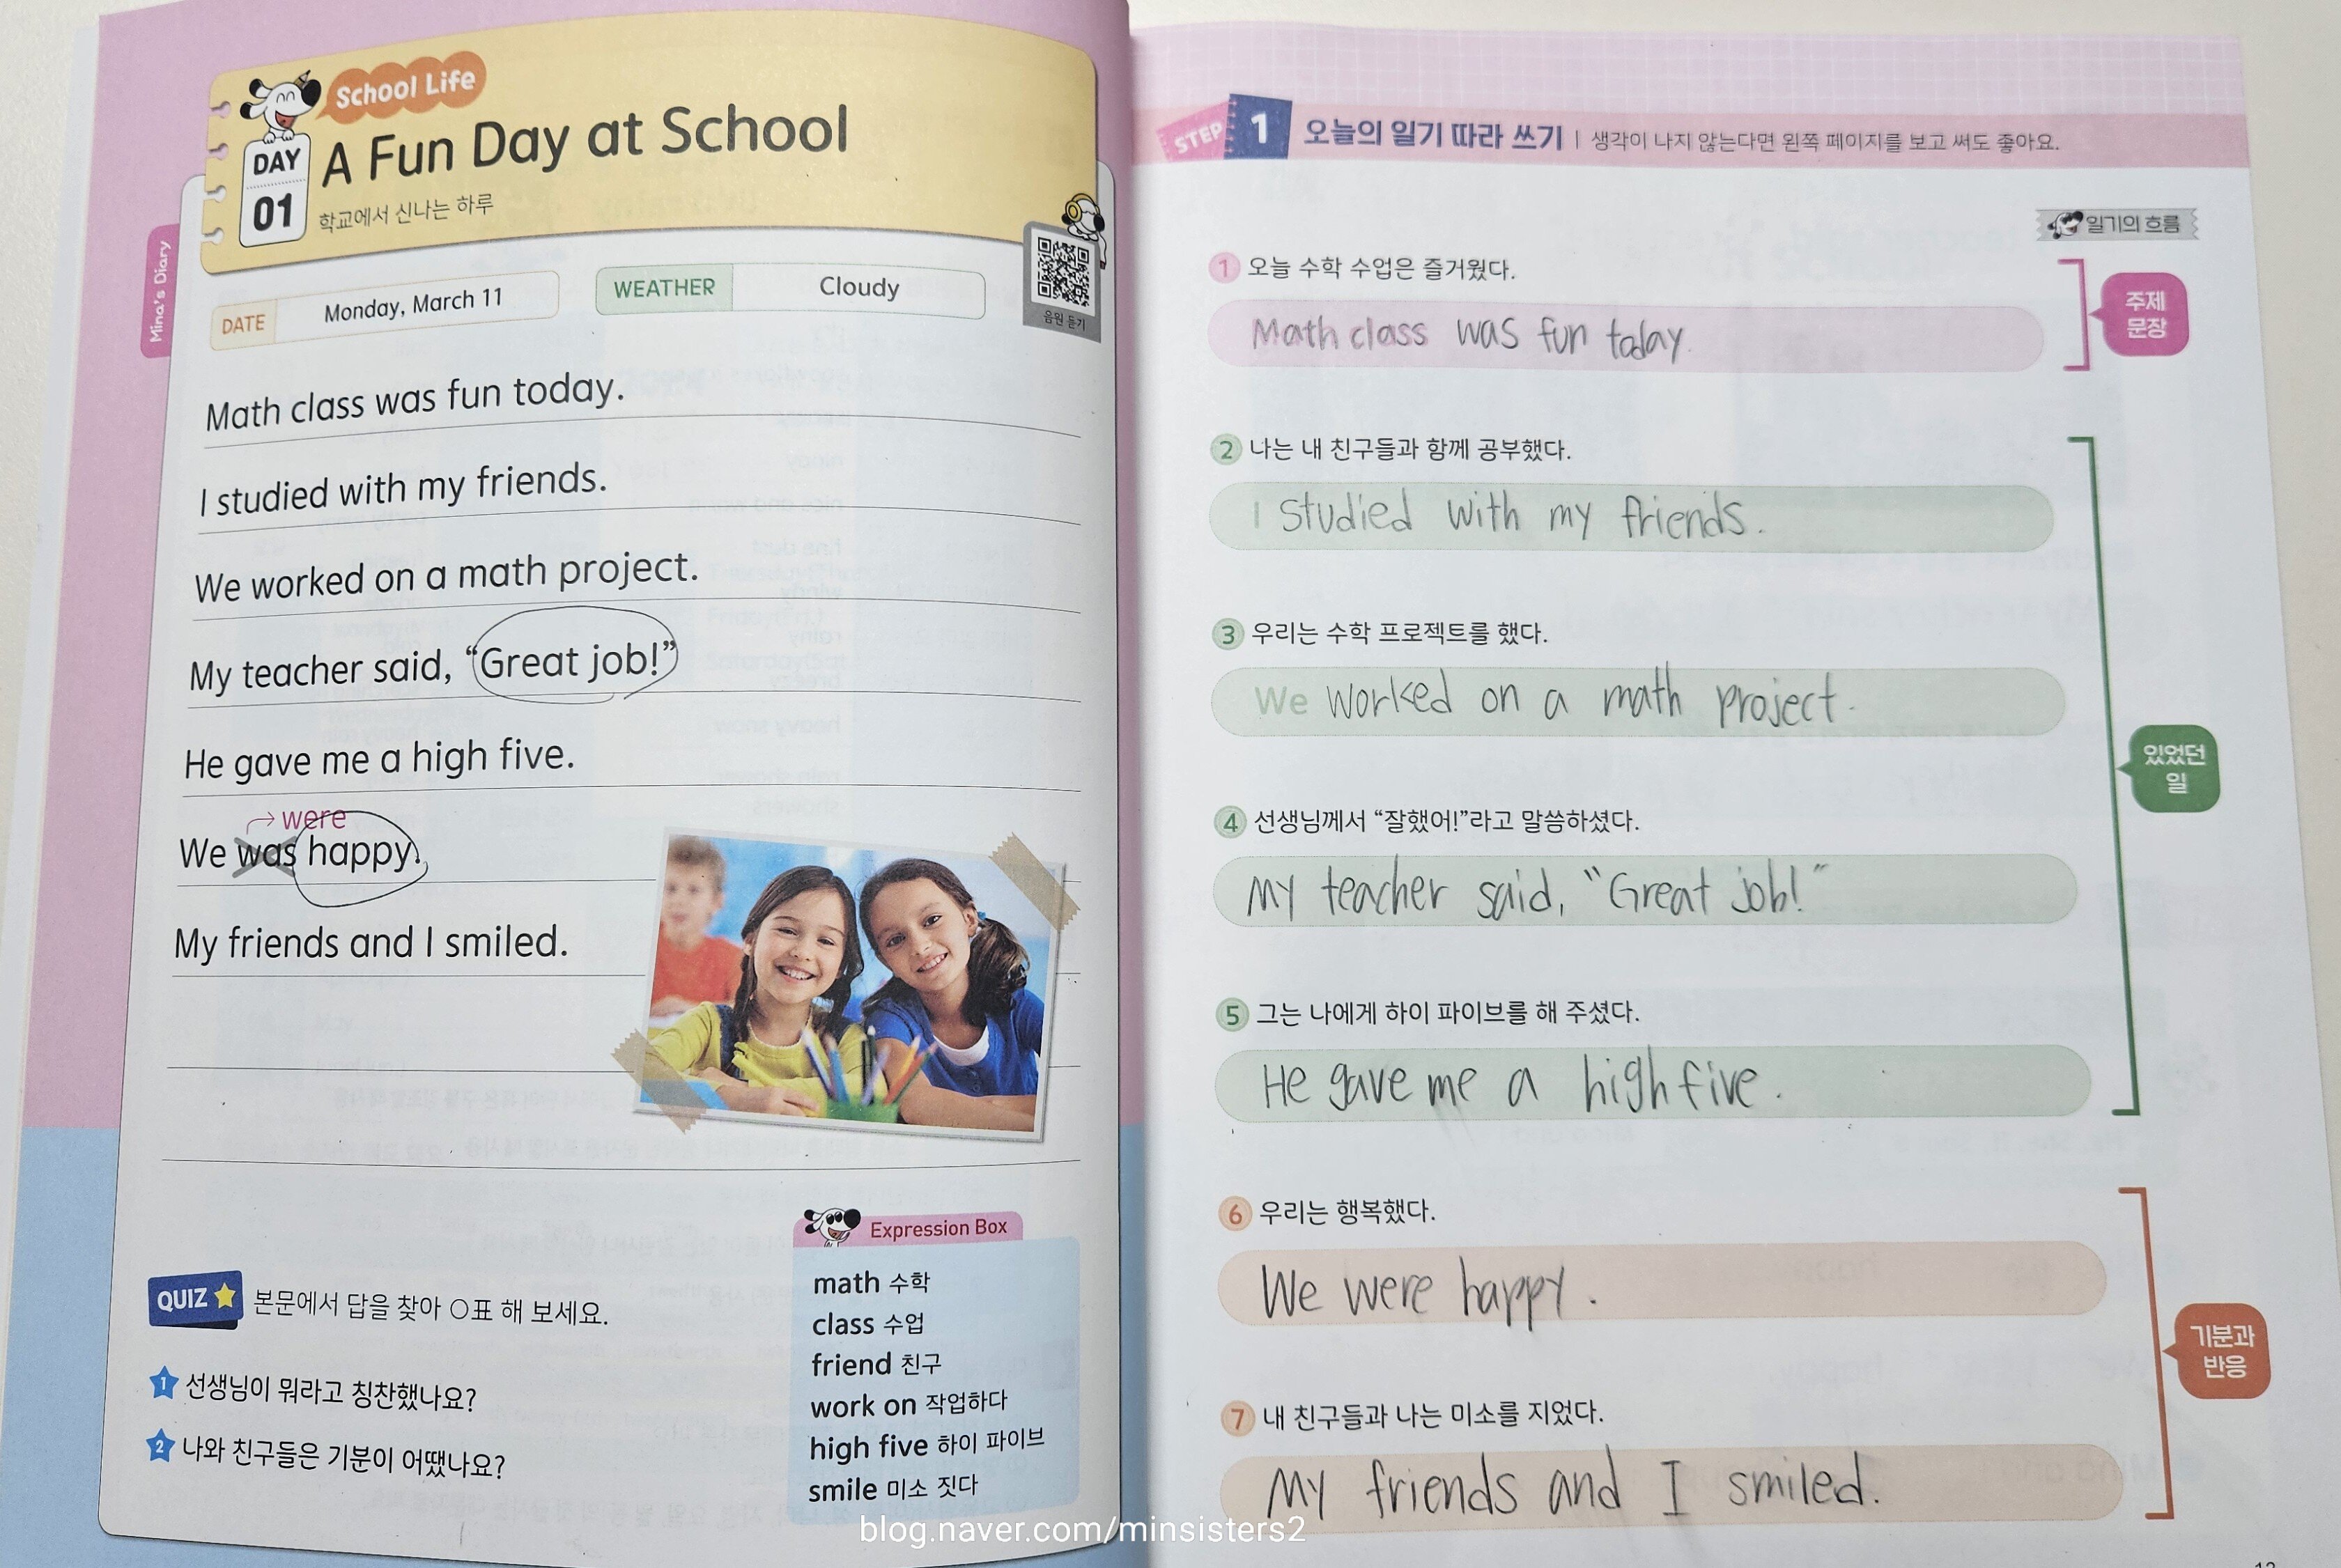 School Life
DAY 01
A Fun Day at School
학교에서 신나는 하루
Mina's Diary
음원 듣기
DATE Monday, March 11
WEATHER Cloudy
Math class was fun today.
I studied with my friends.
We worked on a math project.
My teacher said, “Great job!”
He gave me a high five.
→ were
We was happy.
My friends and I smiled.
QUIZ 본문에서 답을 찾아 ○표 해 보세요.
1 선생님이 뭐라고 칭찬했나요?
2 나와 친구들은 기분이 어땠나요?
Expression Box
math 수학
class 수업
friend 친구
work on 작업하다
high five 하이 파이브
smile 미소 짓다
STEP 1 오늘의 일기 따라 쓰기 | 생각이 나지 않는다면 왼쪽 페이지를 보고 써도 좋아요.
일기의 흐름
1 오늘 수학 수업은 즐거웠다.
Math class was fun today.
주제
문장
2 나는 내 친구들과 함께 공부했다.
I studied with my friends.
3 우리는 수학 프로젝트를 했다.
We worked on a math project.
있었던
일
4 선생님께서 “잘했어!”라고 말씀하셨다.
My teacher said, “Great job!”
5 그는 나에게 하이 파이브를 해 주셨다.
He gave me a high five.
6 우리는 행복했다.
We were happy.
기분과
반응
7 내 친구들과 나는 미소를 지었다.
My friends and I smiled.
blog.naver.com/minsisters2